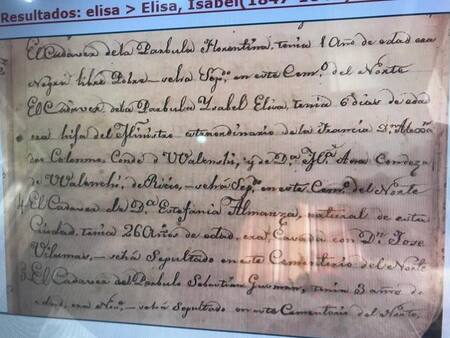 Resultados: elisa > Elisa, Isabel(1847-18
El Cadaver dela Parbula Florentina, tenia 1 Año de edad era
Negra libre Pobre - se ha Sepdo. en este Cemo. del Norte
El Cadaver dela Parbula Ysabel Elisa, tenia 6 dias de edad
era hija del Ministro extraordinario de la Francia Dn. Alexan
dro Colonna, Conde de Walenski, y de Da. Ma. Ana Condeza
de Walenski, de Ricci, - se ha Sepo. en este Cemo. del Norte
El Cadaver de Da. Estefania Almanza, natural de esta
Ciudad, tenia 26 Años de edad, era Casada con Dn. Jose
Vilumas, - se ha Sepultado en este Cementerio del Norte
El Cadaver del Parbulo Sebastian Gusman, tenia 3 años de
edad, era - se ha Sepultado en este Cementerio del Norte,